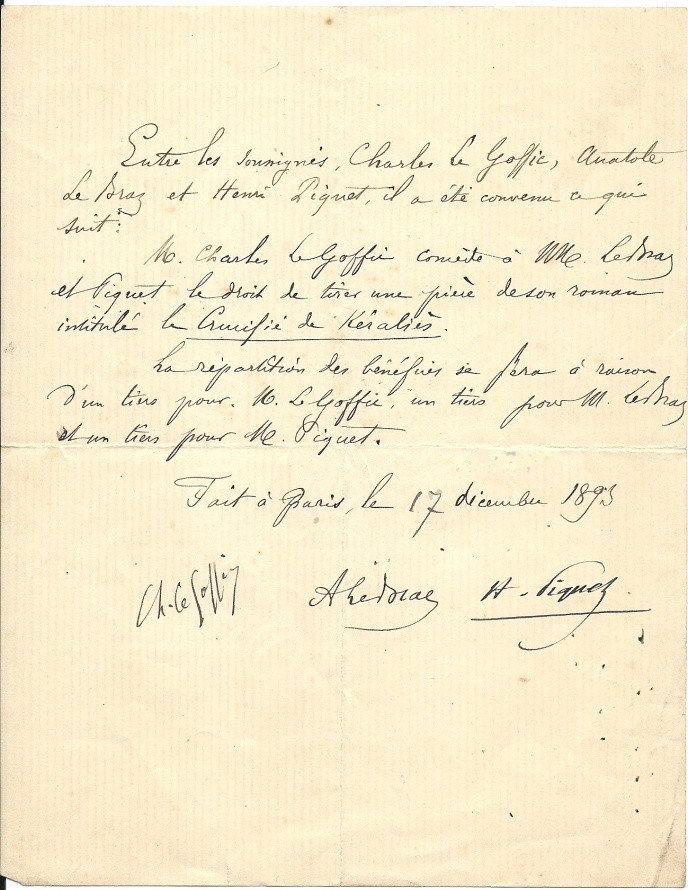 Entre les soussignés, Charles Le Goffic, Anatole
Le Braz et Henri Piguet, il a été convenu ce qui
suit:
M. Charles Le Goffic concède à MM. Le Braz
et Piguet le droit de tirer une pièce de son roman
intitulé le Crucifié de Kéraliès.
La répartition des bénéfices se fera à raison
d'un tiers pour M. Le Goffic, un tiers pour M. Le Braz
et un tiers pour M. Piguet.
Fait à Paris, le 17 décembre 1893
Ch. Le Goffic A Le Braz H. Piguet